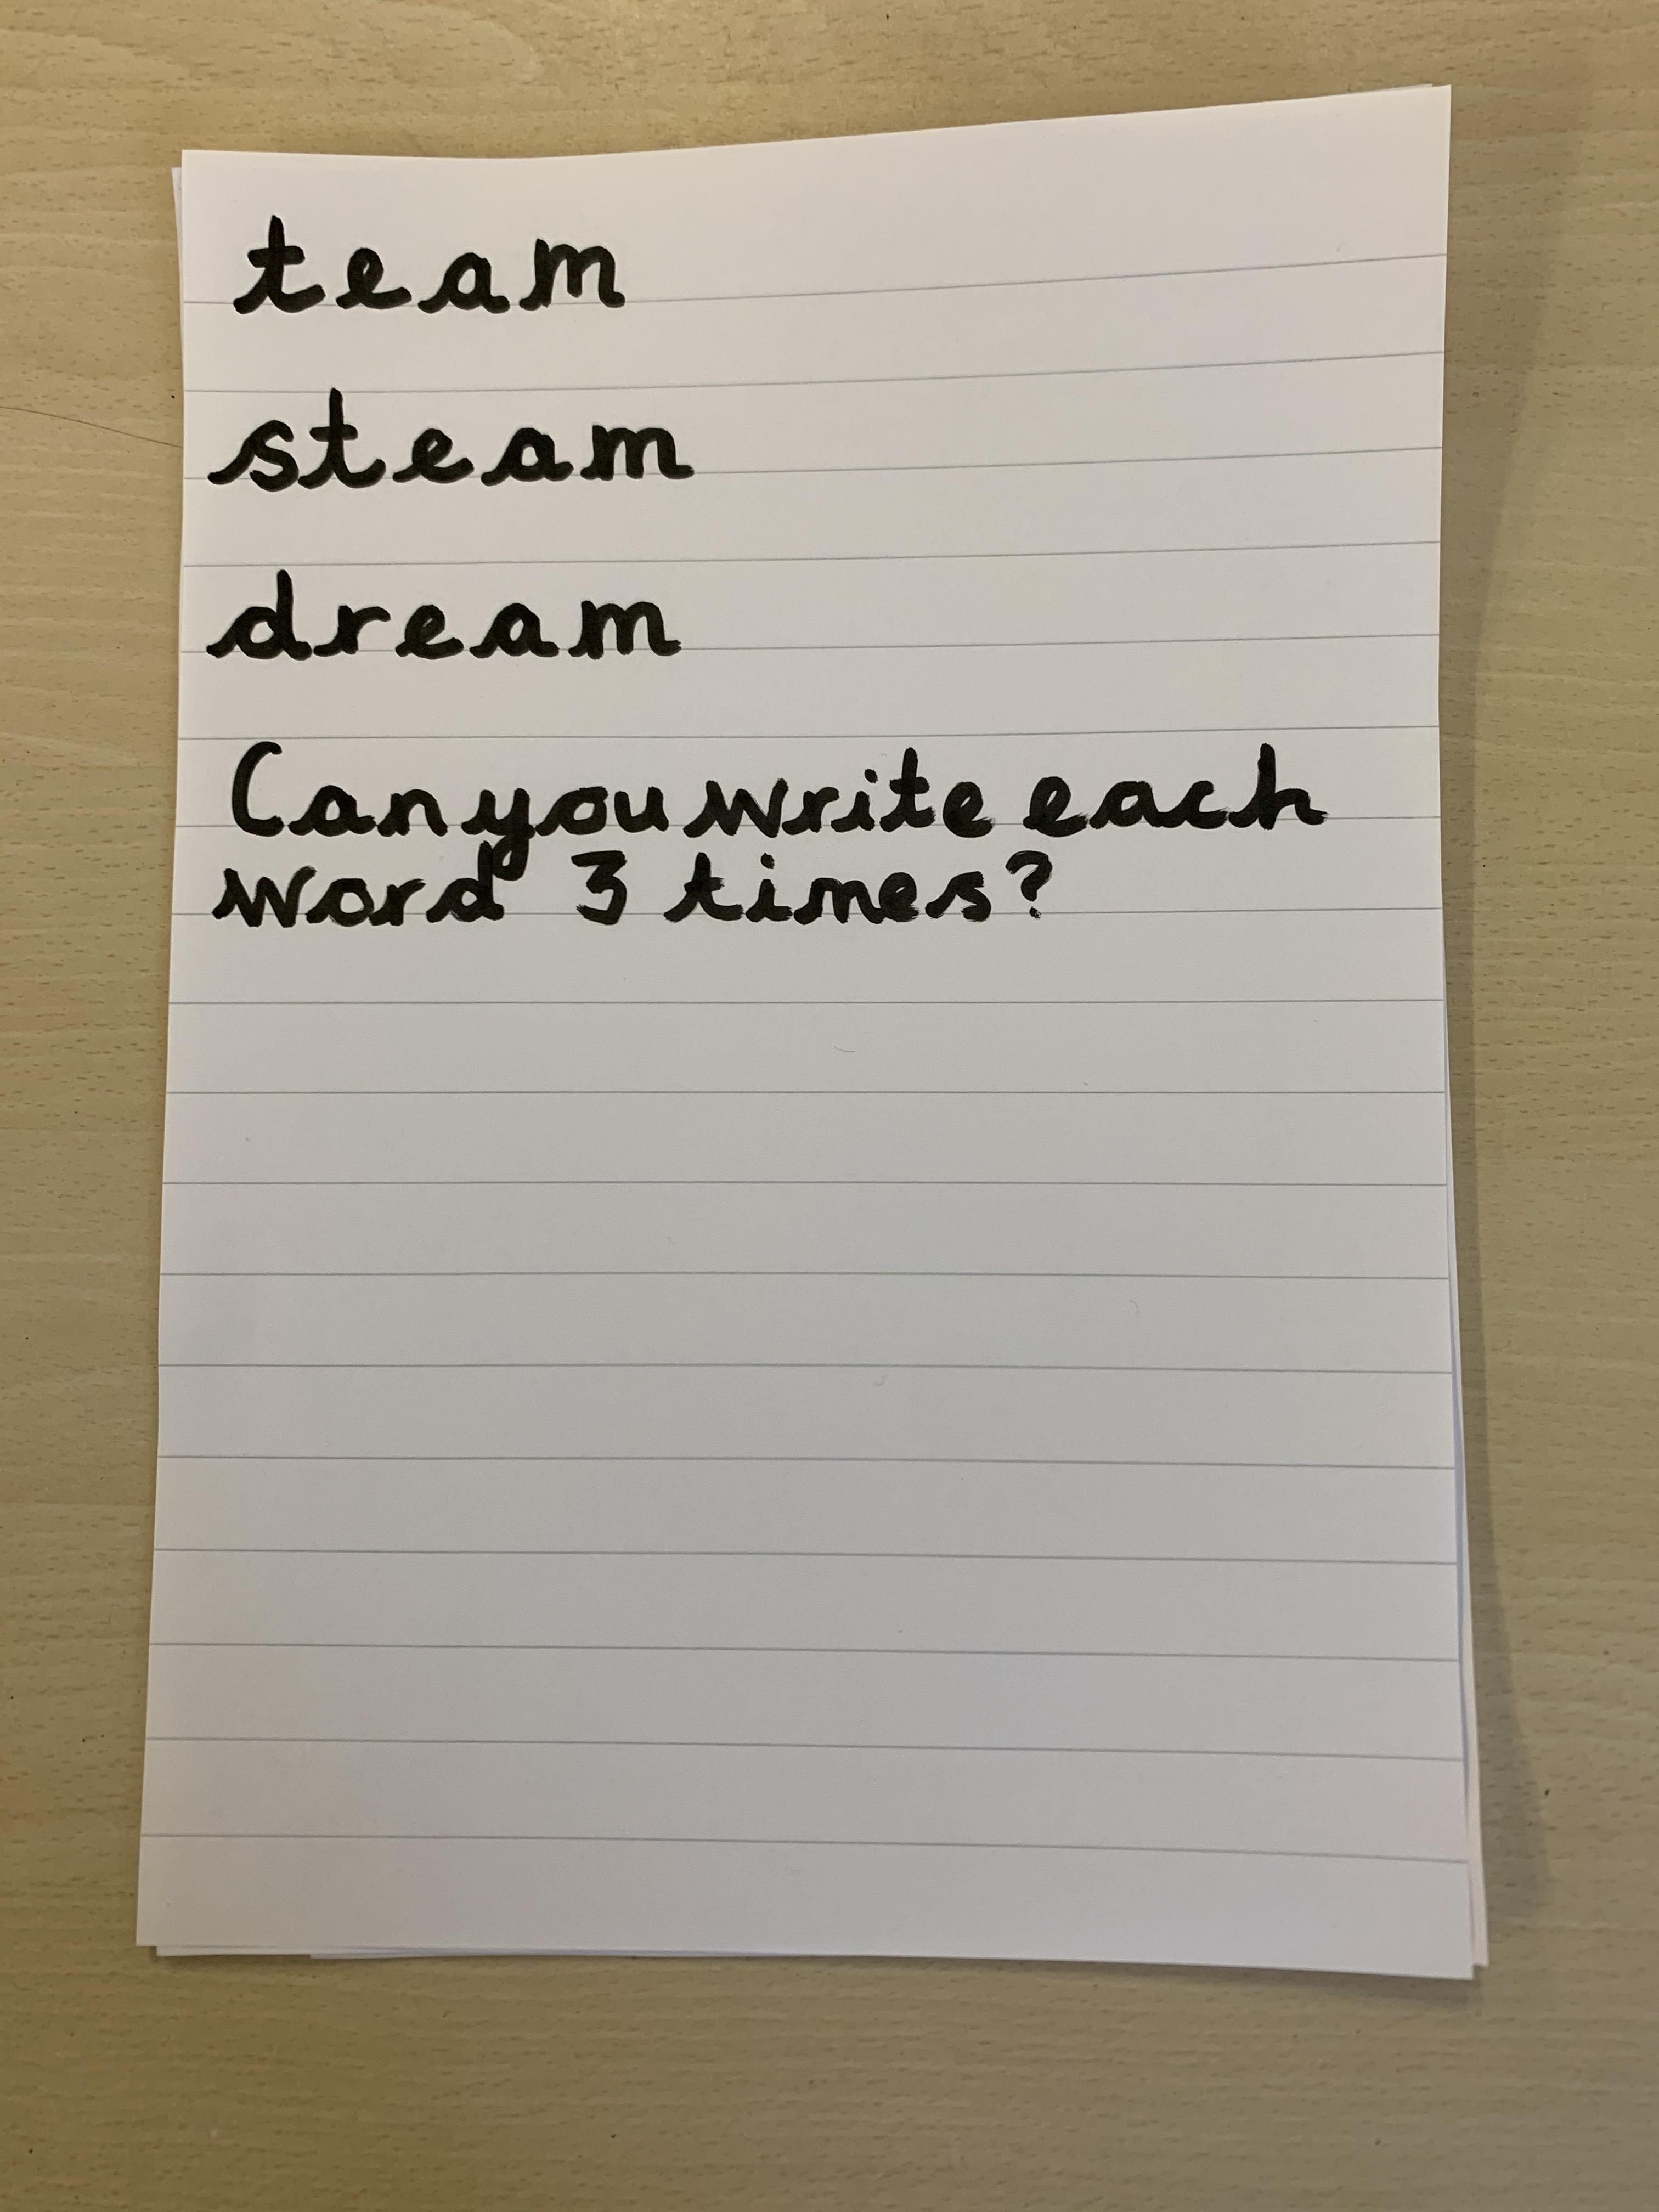 team
steam
dream
Can you write each
word 3 times?